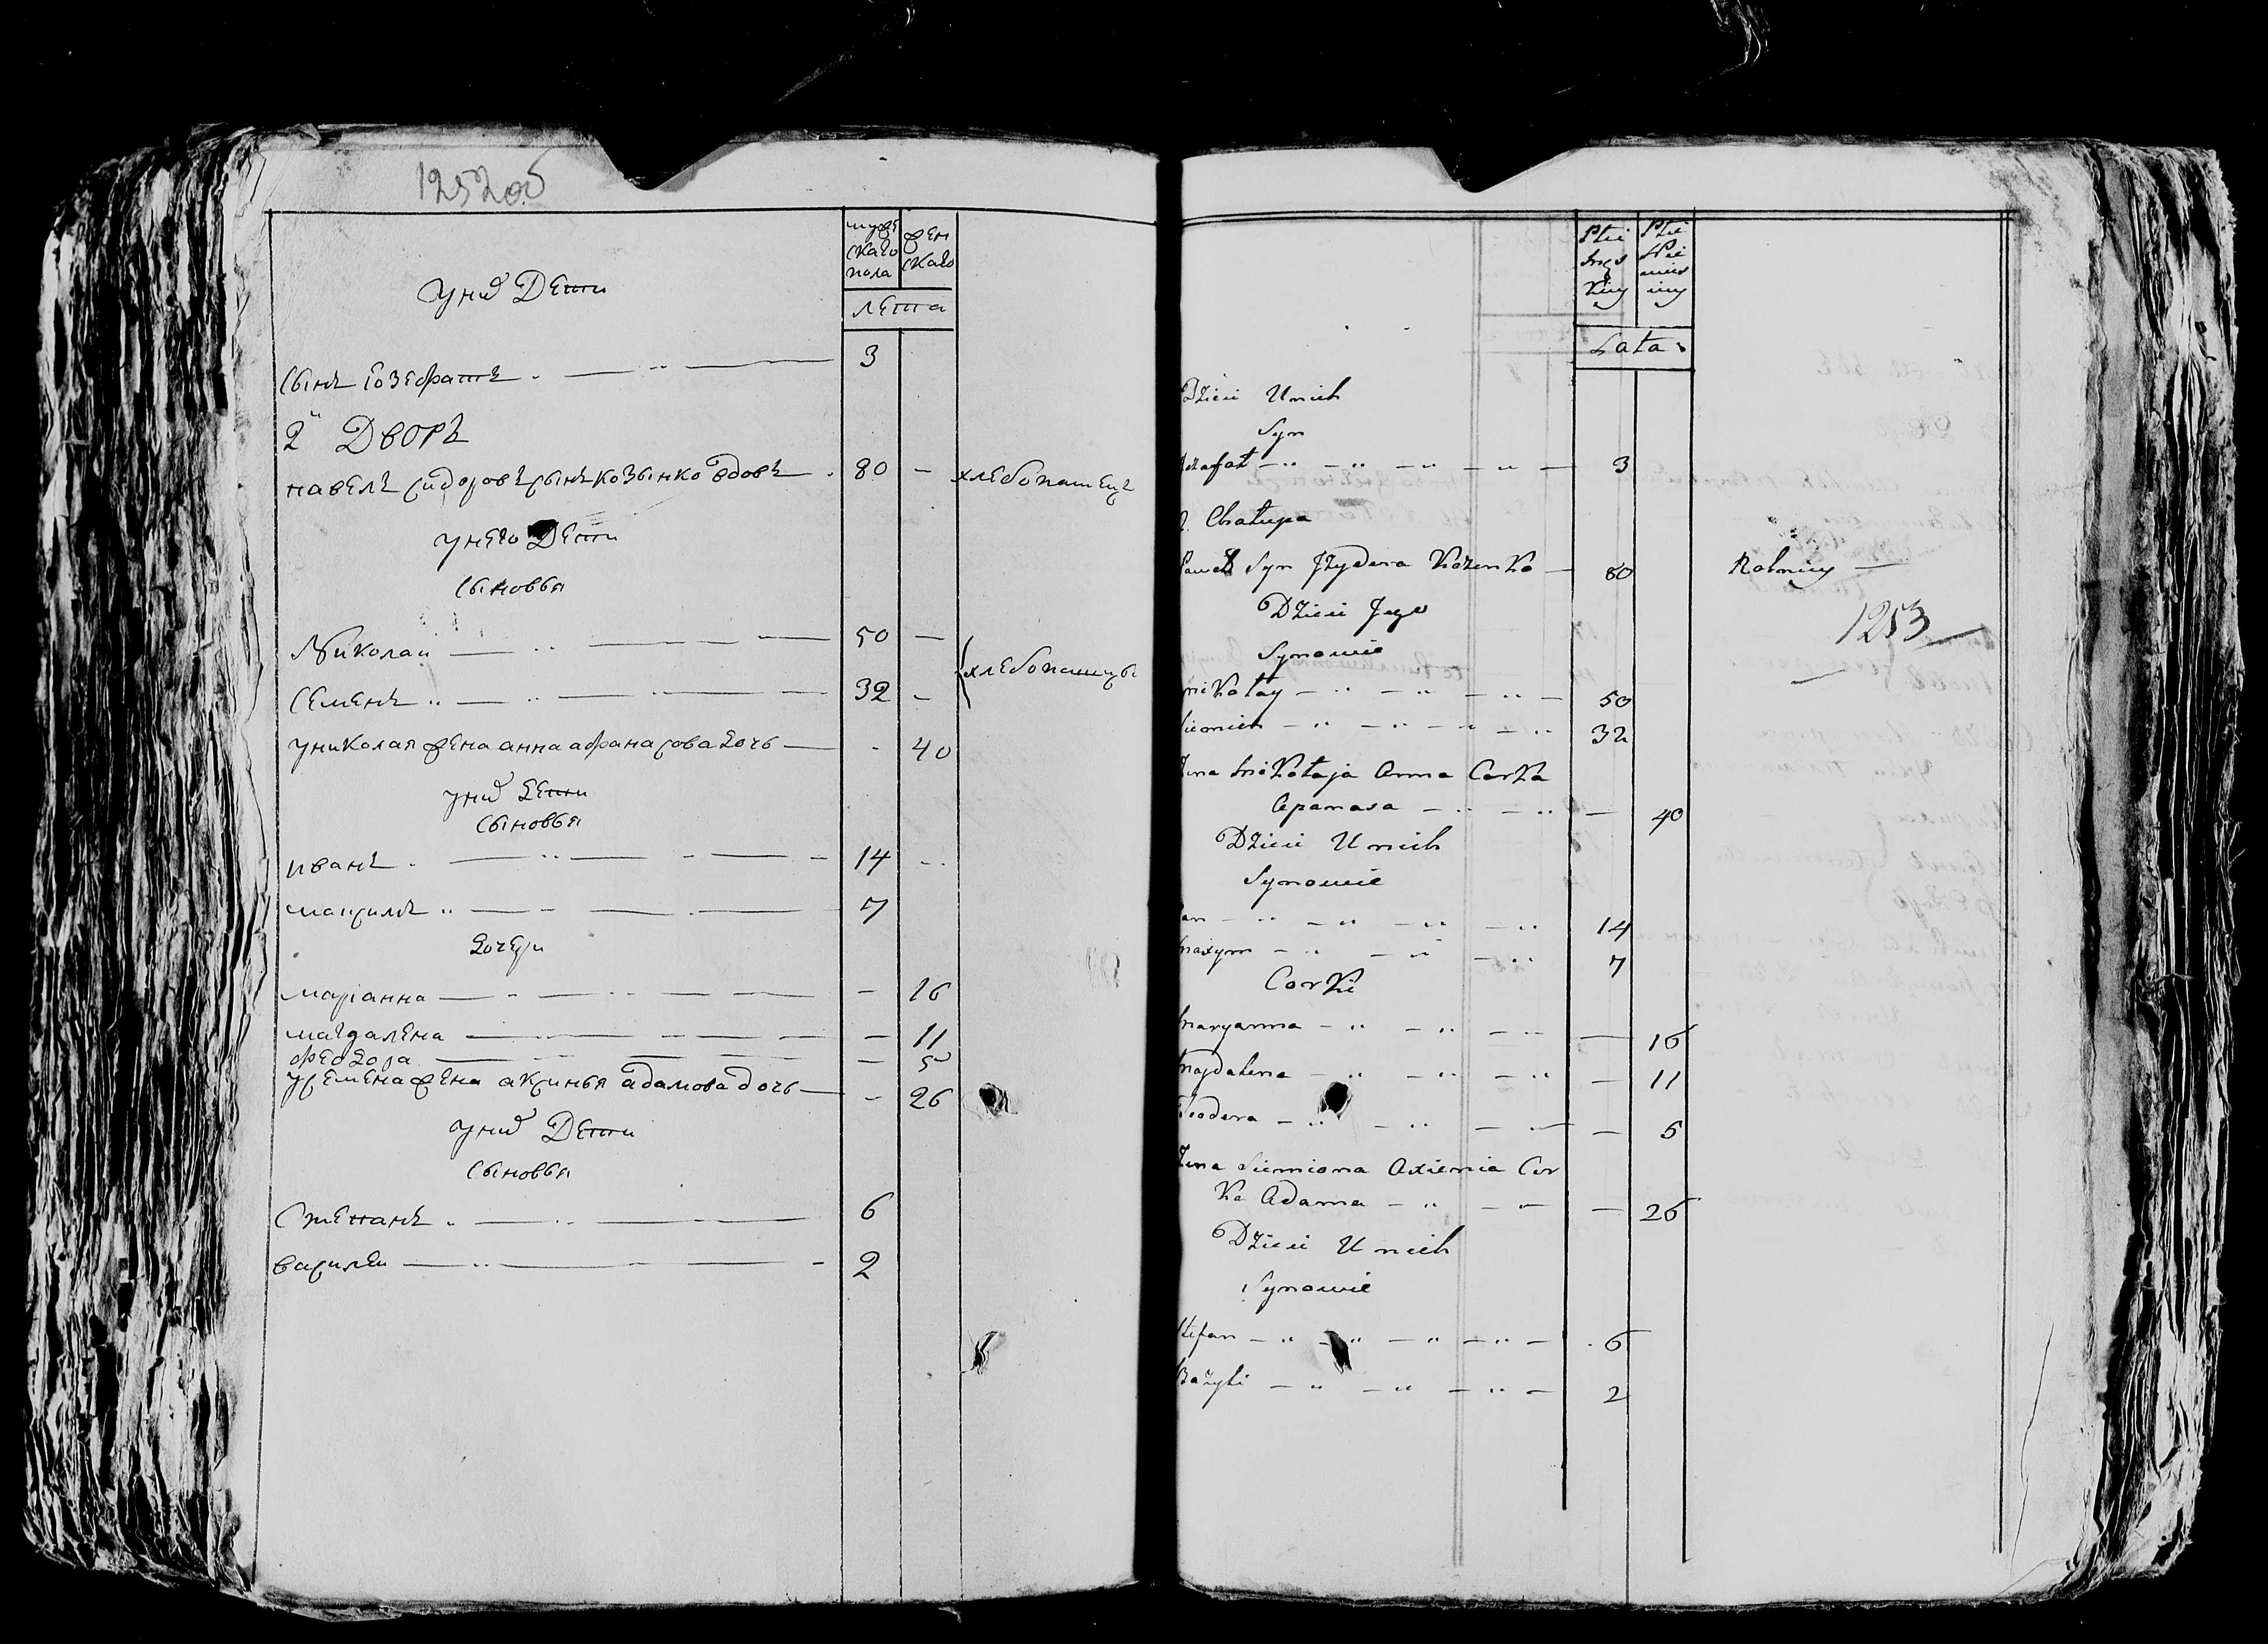 1252 об
муже
скаго
пола
жен
скаго
лета
у них Дети
сынъ Іозефатъ 3
2й Дворъ
павелъ сидоровъ сынъ козынко вдовъ 80 — хлебопашецъ
у него Дети
сыновья
Николай 50 —
хлебопашцы
семенъ 32 —
у николая жена анна афанасова дочь - 40
у них дети
сыновья
иванъ 14
максимъ 7
дочери
маріанна — 16
магдалена — 11
феодора — 5
у семена жена аксинья адамова дочь - 26
у них Дети
сыновья
степанъ 6
василей 2
Płci
męs
kiey
Płci
żeń
Lata
Dzieci U nich
Syn
Jozafat 3
2. Chałupa
Paweł Syn Jzydora Kozenko — 80 Rolniczy
Dzieci Jego
1253
Synowie
Mikołay 50
Siemion 32
Żona Mikołaja Anna Corka
Apanasa — 40
Dzieci U nich
Synowie
Jan 14
Maxym 7
Corki
Maryanna — 16
Magdalena — 11
Teodora — 5
Żona Siemiona Axienia Cor
ka Adama — 26
Dzieci U nich
Synowie
Stefan 6
Bazyli 2